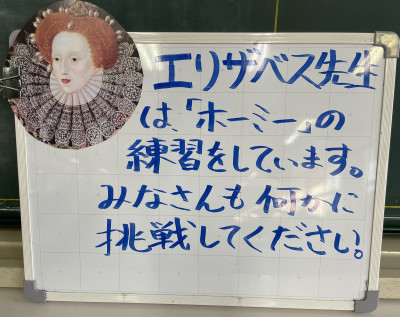 エリザベス先生
は、「ホーミー」の
練習をしています。
みなさんも何かに
挑戦してください。